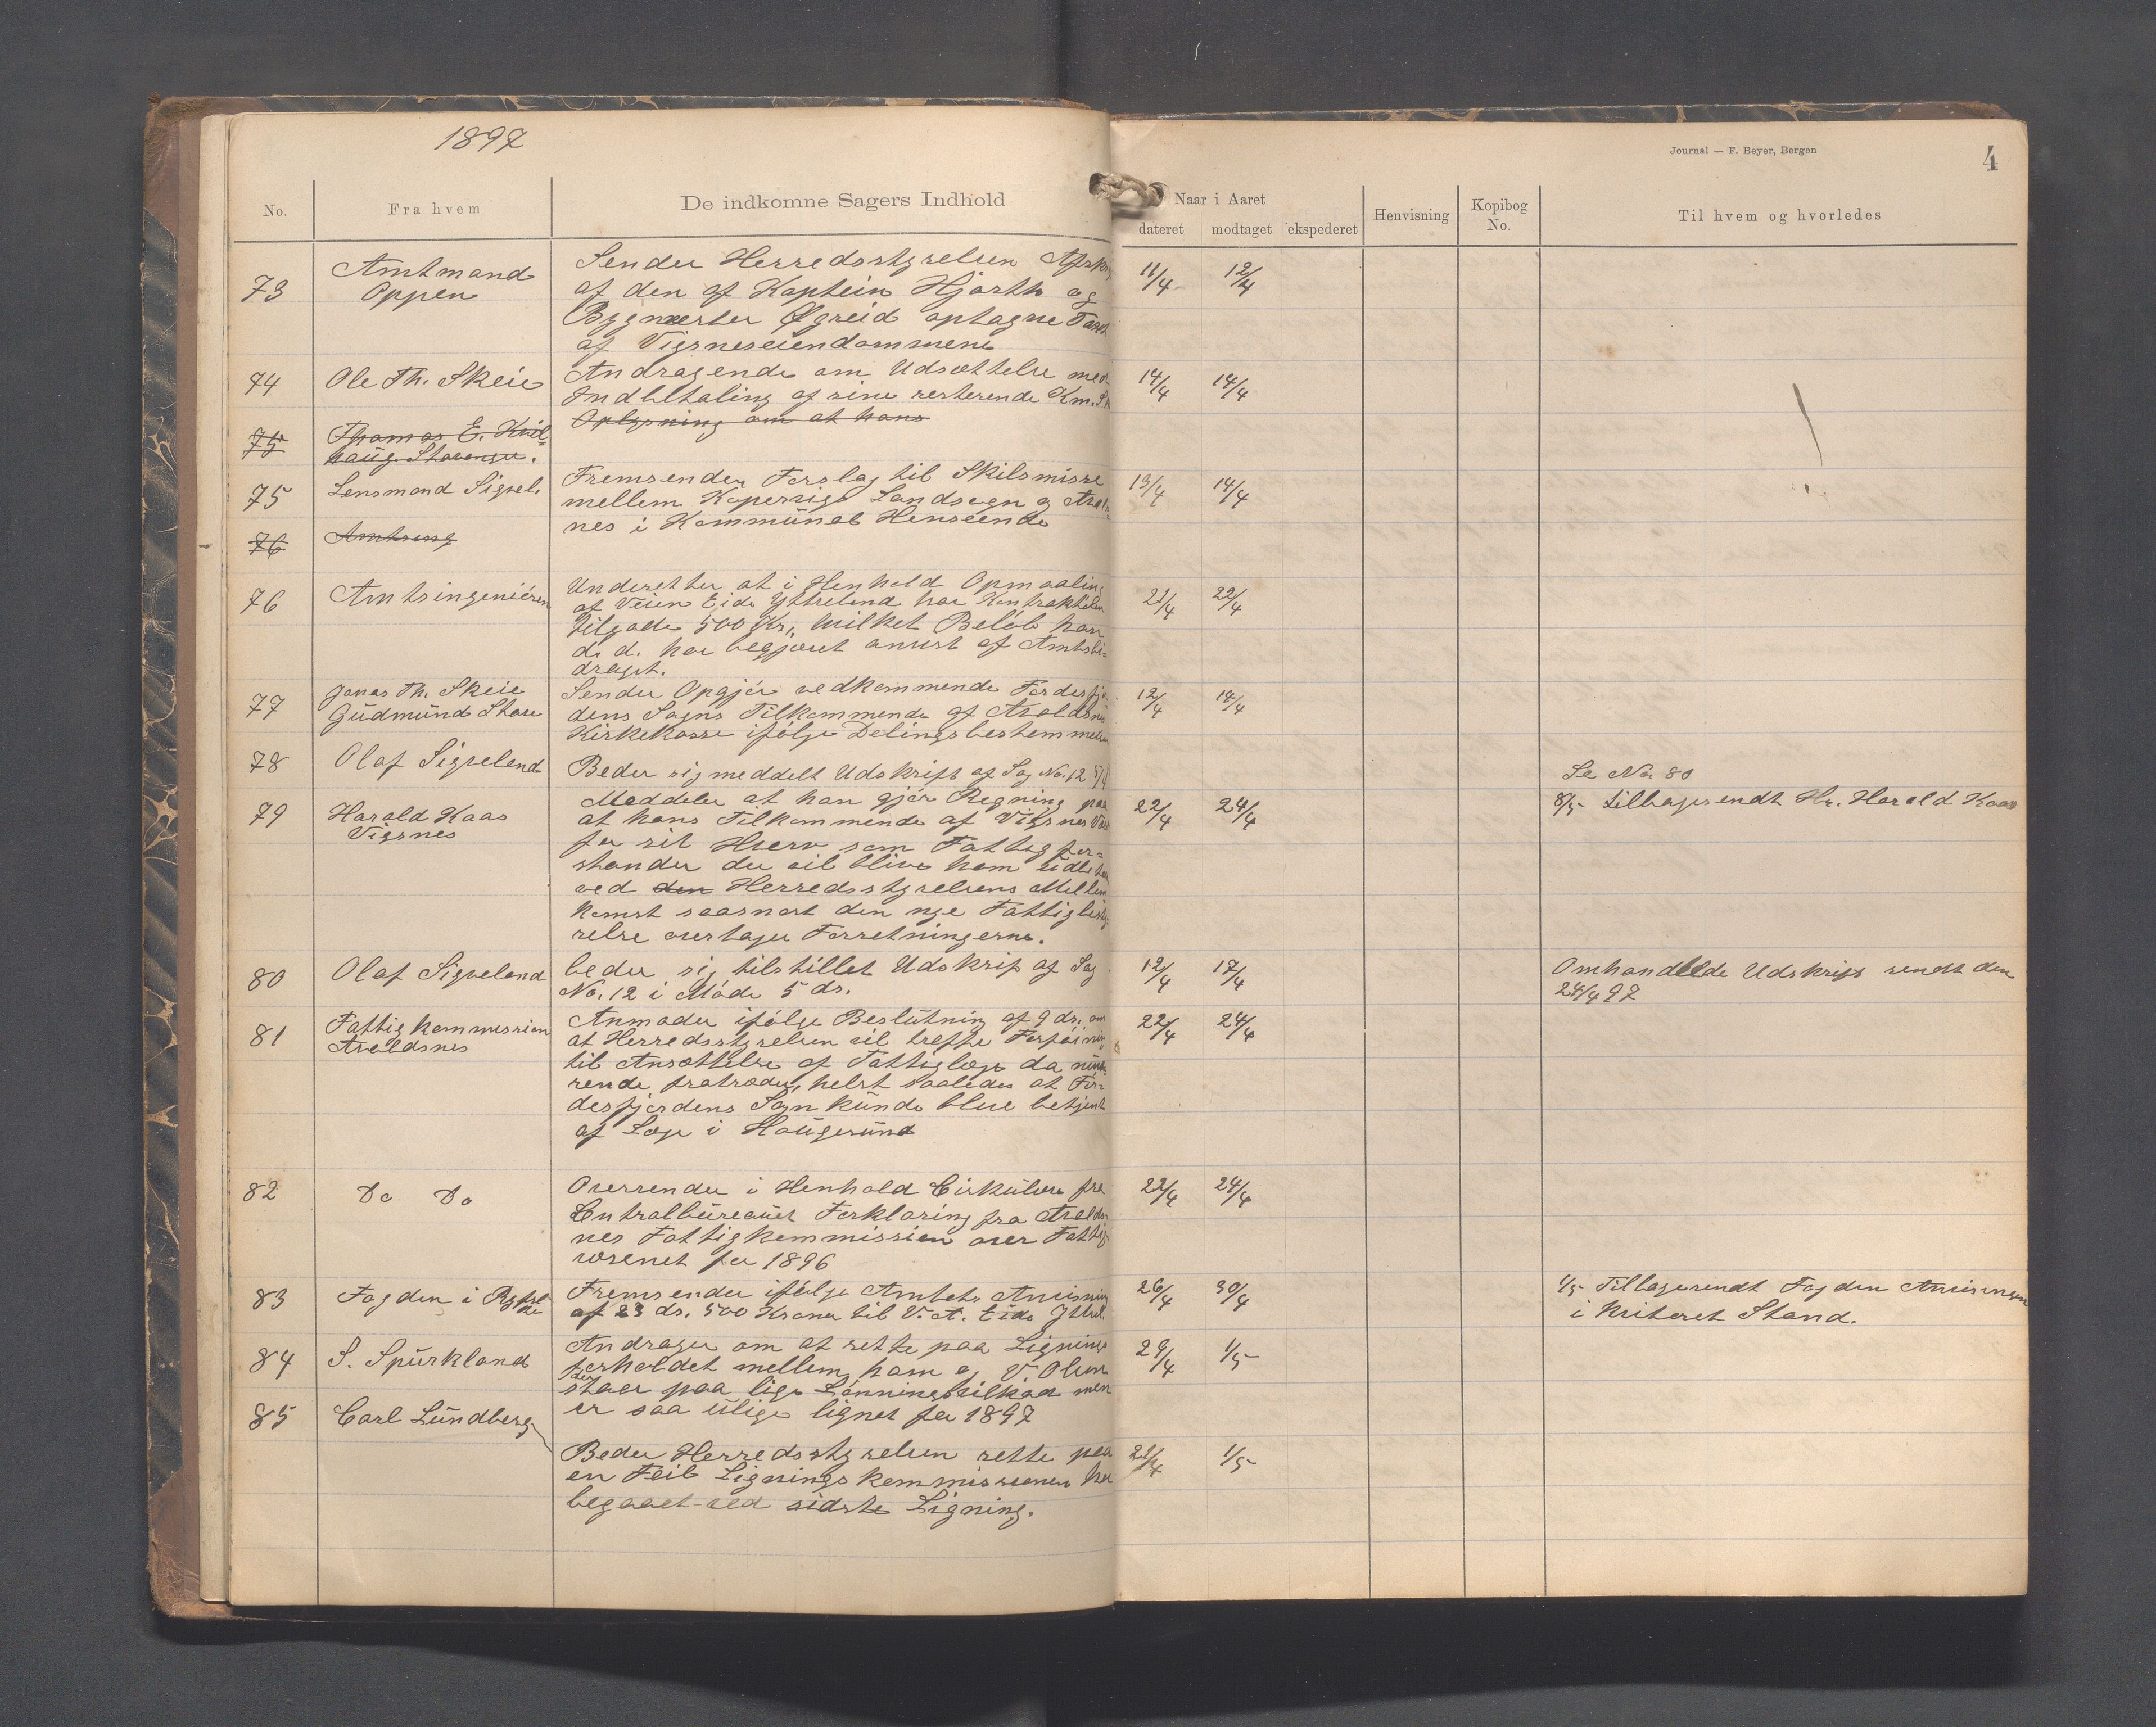 1897
Journal — F. Beyer, Bergen
4
No.
Fra hvem
De indkomne Sagers Indhold
Naar i Aaret
dateret modtaget ekspederet
Henvisning
Kopibog No.
Til hvem og hvorledes
73 Amtmand Oppen
Sender Herredsstyrelsen
af den af Kaptein Hjorth og
Bygmester Øgreid optagne Taxt
af Vigsneseiendommene
11/4 12/4
74 Ole Th. Skeie
Andragende om Udsættelse med
Indbetaling af sine resterende Km. Sk
14/4 14/4
75 Thomas E. Kvil=
haug. Stavanger.
Oplysning om at hans
75 Lensmand Sigvel.
Fremsender Forslag til Skilsmisse
mellem Kopervigs Landsogn og Avalds=
nes i Kommunal Henseende
13/4 14/4
76 Amtsing
76 Amtsingeniören
Underetter at i Henhold Opmaaling
af Veien Eide Yttreland har Kontraktøren
tilgode 500 Kr., hvilket Beløb han
d. d. har begjæret anvist af Amtsbi=
draget.
21/4 22/4
77 Jonas Th. Skeie
Gudmund Stave
Sender Opgjör vedkommende Fördesfjor
dens Sogns Tilkommende af Avaldsnes
Kirkekasse ifölge Delingsbestemmelsen
12/4 14/4
78 Olaf Sigveland
Beder sig meddelt Udskrift af Sag No. 12 5/4
Se No. 80
79 Harald Kaas
Vigsnes
Meddeler at han gjör Regning paa
at hans Tilkommende af Vigsnes
for sit Hverv som Fattigfor=
stander der vil blive ham udbetalt
ved den Herredsstyrelsens Mellem
komst saasnart den nye Fattigbesty
relse overtager Forretningerne.
22/4 24/4
8/5 tilbagesendt Hr. Harald Kaas
80 Olaf Sigveland
beder sig tilstillet Udskrift af Sag
No. 12 i Möde 5 ds.
12/4 17/4
Omhandlede Udskrift sendt den
24/4 97
81 Fattigkommission
Avaldsnes
Anmoder ifölge Beslutning af 9 ds. om
at Herredsstyrelsen vil treffe Forföining
til Ansættelse af Fattiglæge da nuvæ=
rende fratræder, helst saaledes at För=
desfjordens Sogn kunde blive betjent
af Læge i Haugesund
22/4 24/4
82 Do Do
Oversender i Henhold Cirkulære fra
Centralbureauet Forklaring fra Avalds=
nes Fattigkommission over Fattig
væsenet for 1896
22/4 24/4
83 Fogden i Ryfylke
Fremsender ifölge Amtets Anvisning
af 23 ds. 500 Kroner til V. at. Eide Yttrel.
26/4 30/4
1/5 Tilbagesendt Fogden Anvisningen
i kviteret Stand.
84 S. Spurkland
Andrager om at rette paa Lignings
forholdet mellem ham og V. Olsen
der staar paa lige Lönningsvilkaar men
er saa ulige lignet for 1897
29/4 1/5
85 Carl Lundberg
Beder Herredsstyrelsen rette paa
en Feil Ligningskommissionen har
begaaet ved sidste Ligning.
1/5